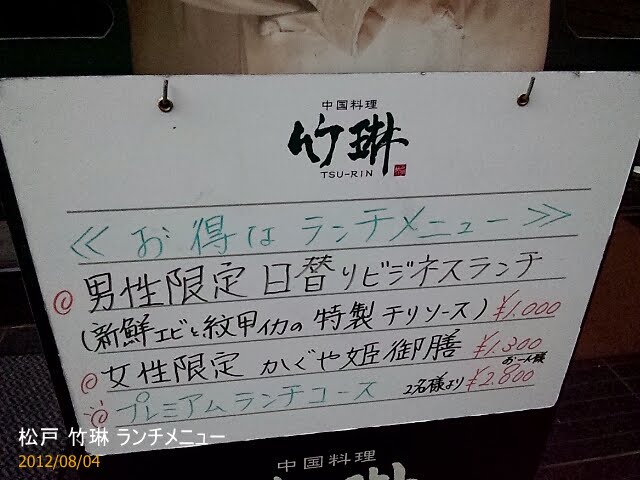 中国料理
竹琳
TSU-RIN
≪お得なランチメニュー≫
◎男性限定 日替りビジネスランチ
(新鮮エビと紋甲イカの特製チリソース) ¥1.000
◎女性限定 かぐや姫御膳 ¥1.300
お一人様
◎プレミアムランチコース 2名様より ¥2.800
松戸 竹琳 ランチメニュー
2012/08/04
中国料理